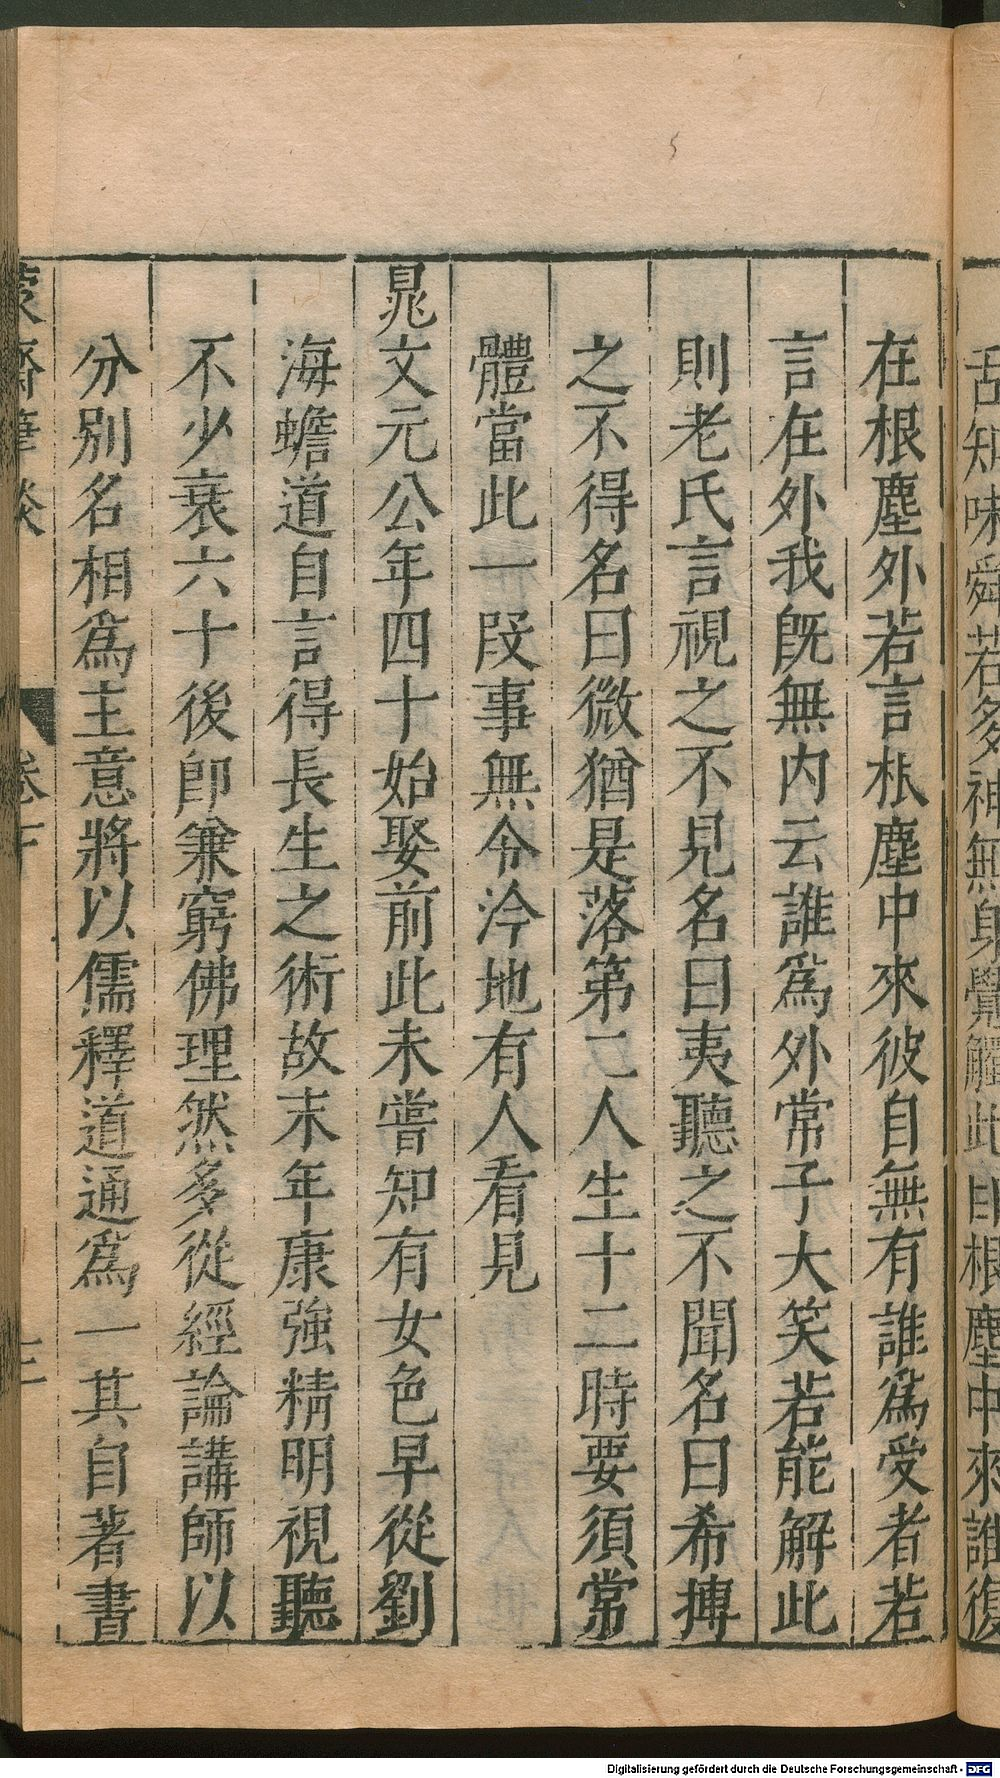 舌知味舜若多神無身覺觸此由根塵中來誰復
在根塵外若言根塵中來彼自無有誰爲受者若
言在外我旣無内云誰爲外常子大笑若能解此
則老氏言視之不見名曰夷聽之不聞名曰希摶
之不得名曰微猶是落第二人生十二時要須常
體當此一段事無令汵地有人看見
晁文元公年四十始娶前此未嘗知有女色早從劉
海蟾道自言得長生之術故末年康強精明視聽
不少衰六十後卽兼窮佛理然多從經論講師以
分别名相爲主意將以儒釋道通爲一其自著書
蒙齋筆談
卷下
Digitalisierung gefördert durch die Deutsche Forschungsgemeinschaft - DFG